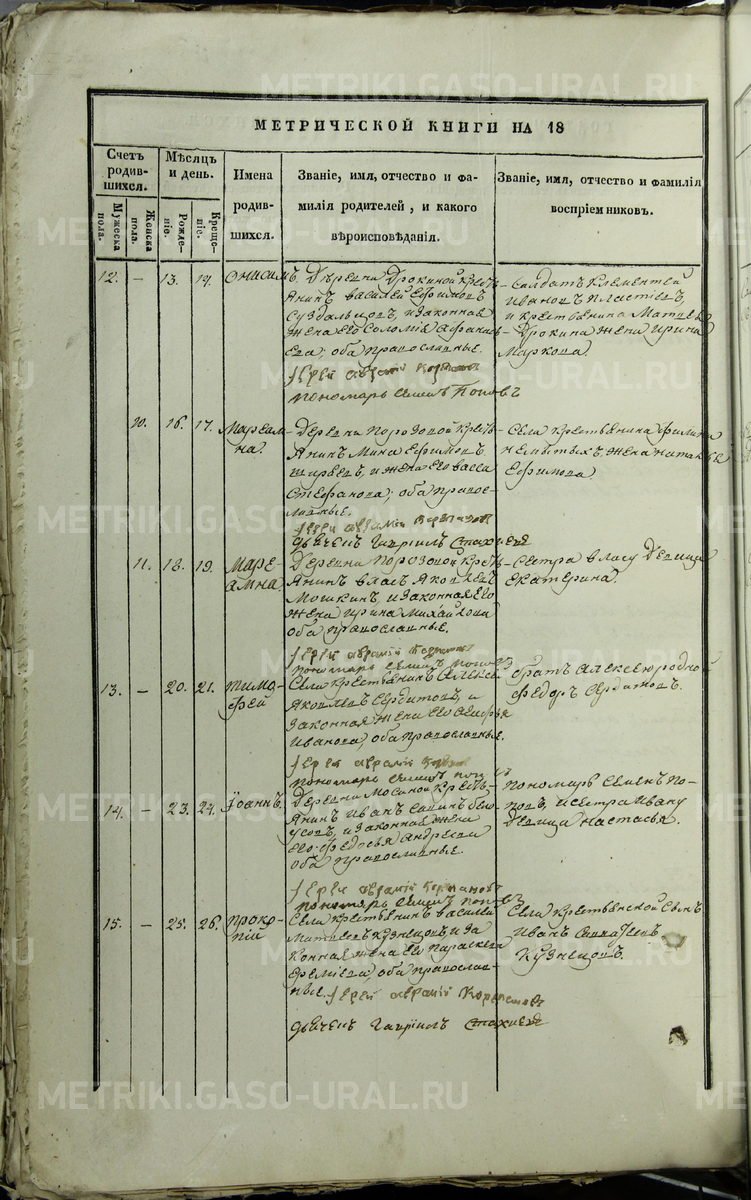 МЕТРИЧЕСКОЙ КНИГИ НА 18
Счетъ родив-шихся.
Мужеска пола.
Женска пола.
Мѣсяцъ и день.
Рожде-ніе.
Креще-ніе.
Имена
родив-
шихся.
Званіе, имя, отчество и фа-
милія родителей, и какого
вѣроисповѣданія.
Званіе, имя, отчество и фамилія
воспріемниковъ.
12. – 13. 19. Онисимъ.
Деревни Дрокиной кресть-
янинъ Василей Ефимовъ
Суздальцовъ, и законная
жена его Соломія Афанась-
ева; оба православные.
Іерей Авраамій
пономарь Семенъ Поповъ
Солдатъ Клементей
Ивановъ Пластеевъ,
и крестьянина Матвея
Дрокина жена Ирина
Маркова.
10. 16. 17. Мареам-
на.
Деревни Порозовой кресть-
янинъ Мина Ефимовъ
Ширяевъ, и жена его Васса
Стефанова; оба право-
славные.
Іерей Авраамій
дьяченъ Гавріилъ Стахіевъ
Села крестьянина Филипа
Немытыхъ жена Наталья
Ефимова
11. 18. 19. Маре-
амна,
Деревни Порозовой кресть-
янинъ Власъ Яковлевъ
Мошкинъ, и законная его
жена Ирина Михайлова
оба православные.
Іерей Авраамій
пономарь Семенъ Поповъ
Сестра Власу девица
Екатерина.
13. – 20. 21. Тимо-
фей
Села крестьянинъ Алексей
Яковлевъ Сердитовъ, и
законная жена его
Иванова, оба православные.
Іерей Авраамій
пономарь Семенъ Поповъ
братъ Алексею родной
Федоръ Сердитовъ.
14. – 23. 24. Іоаннъ.
Деревни Мосиной кресть-
янинъ Иванъ Савинъ Бело-
усовъ, и законная жена
его Федосья Андреева
оба православные.
Іерей Авраамій
пономарь Семенъ Поповъ
Пономарь Семенъ По-
повъ, и сестра Ивану
девица Настасья.
15. – 25. 26. Проко-
пій
Села крестьянинъ Василей
Матвеевъ Кузнецовъ и за-
конная жена его Параскева
Еремеева оба православ-
ные. Іерей Авраамій
дьяченъ Гавріилъ Стахіевъ
Села крестьянской сынъ
Иванъ
Кузнецовъ.
METRIKI.GASO-URAL.RU